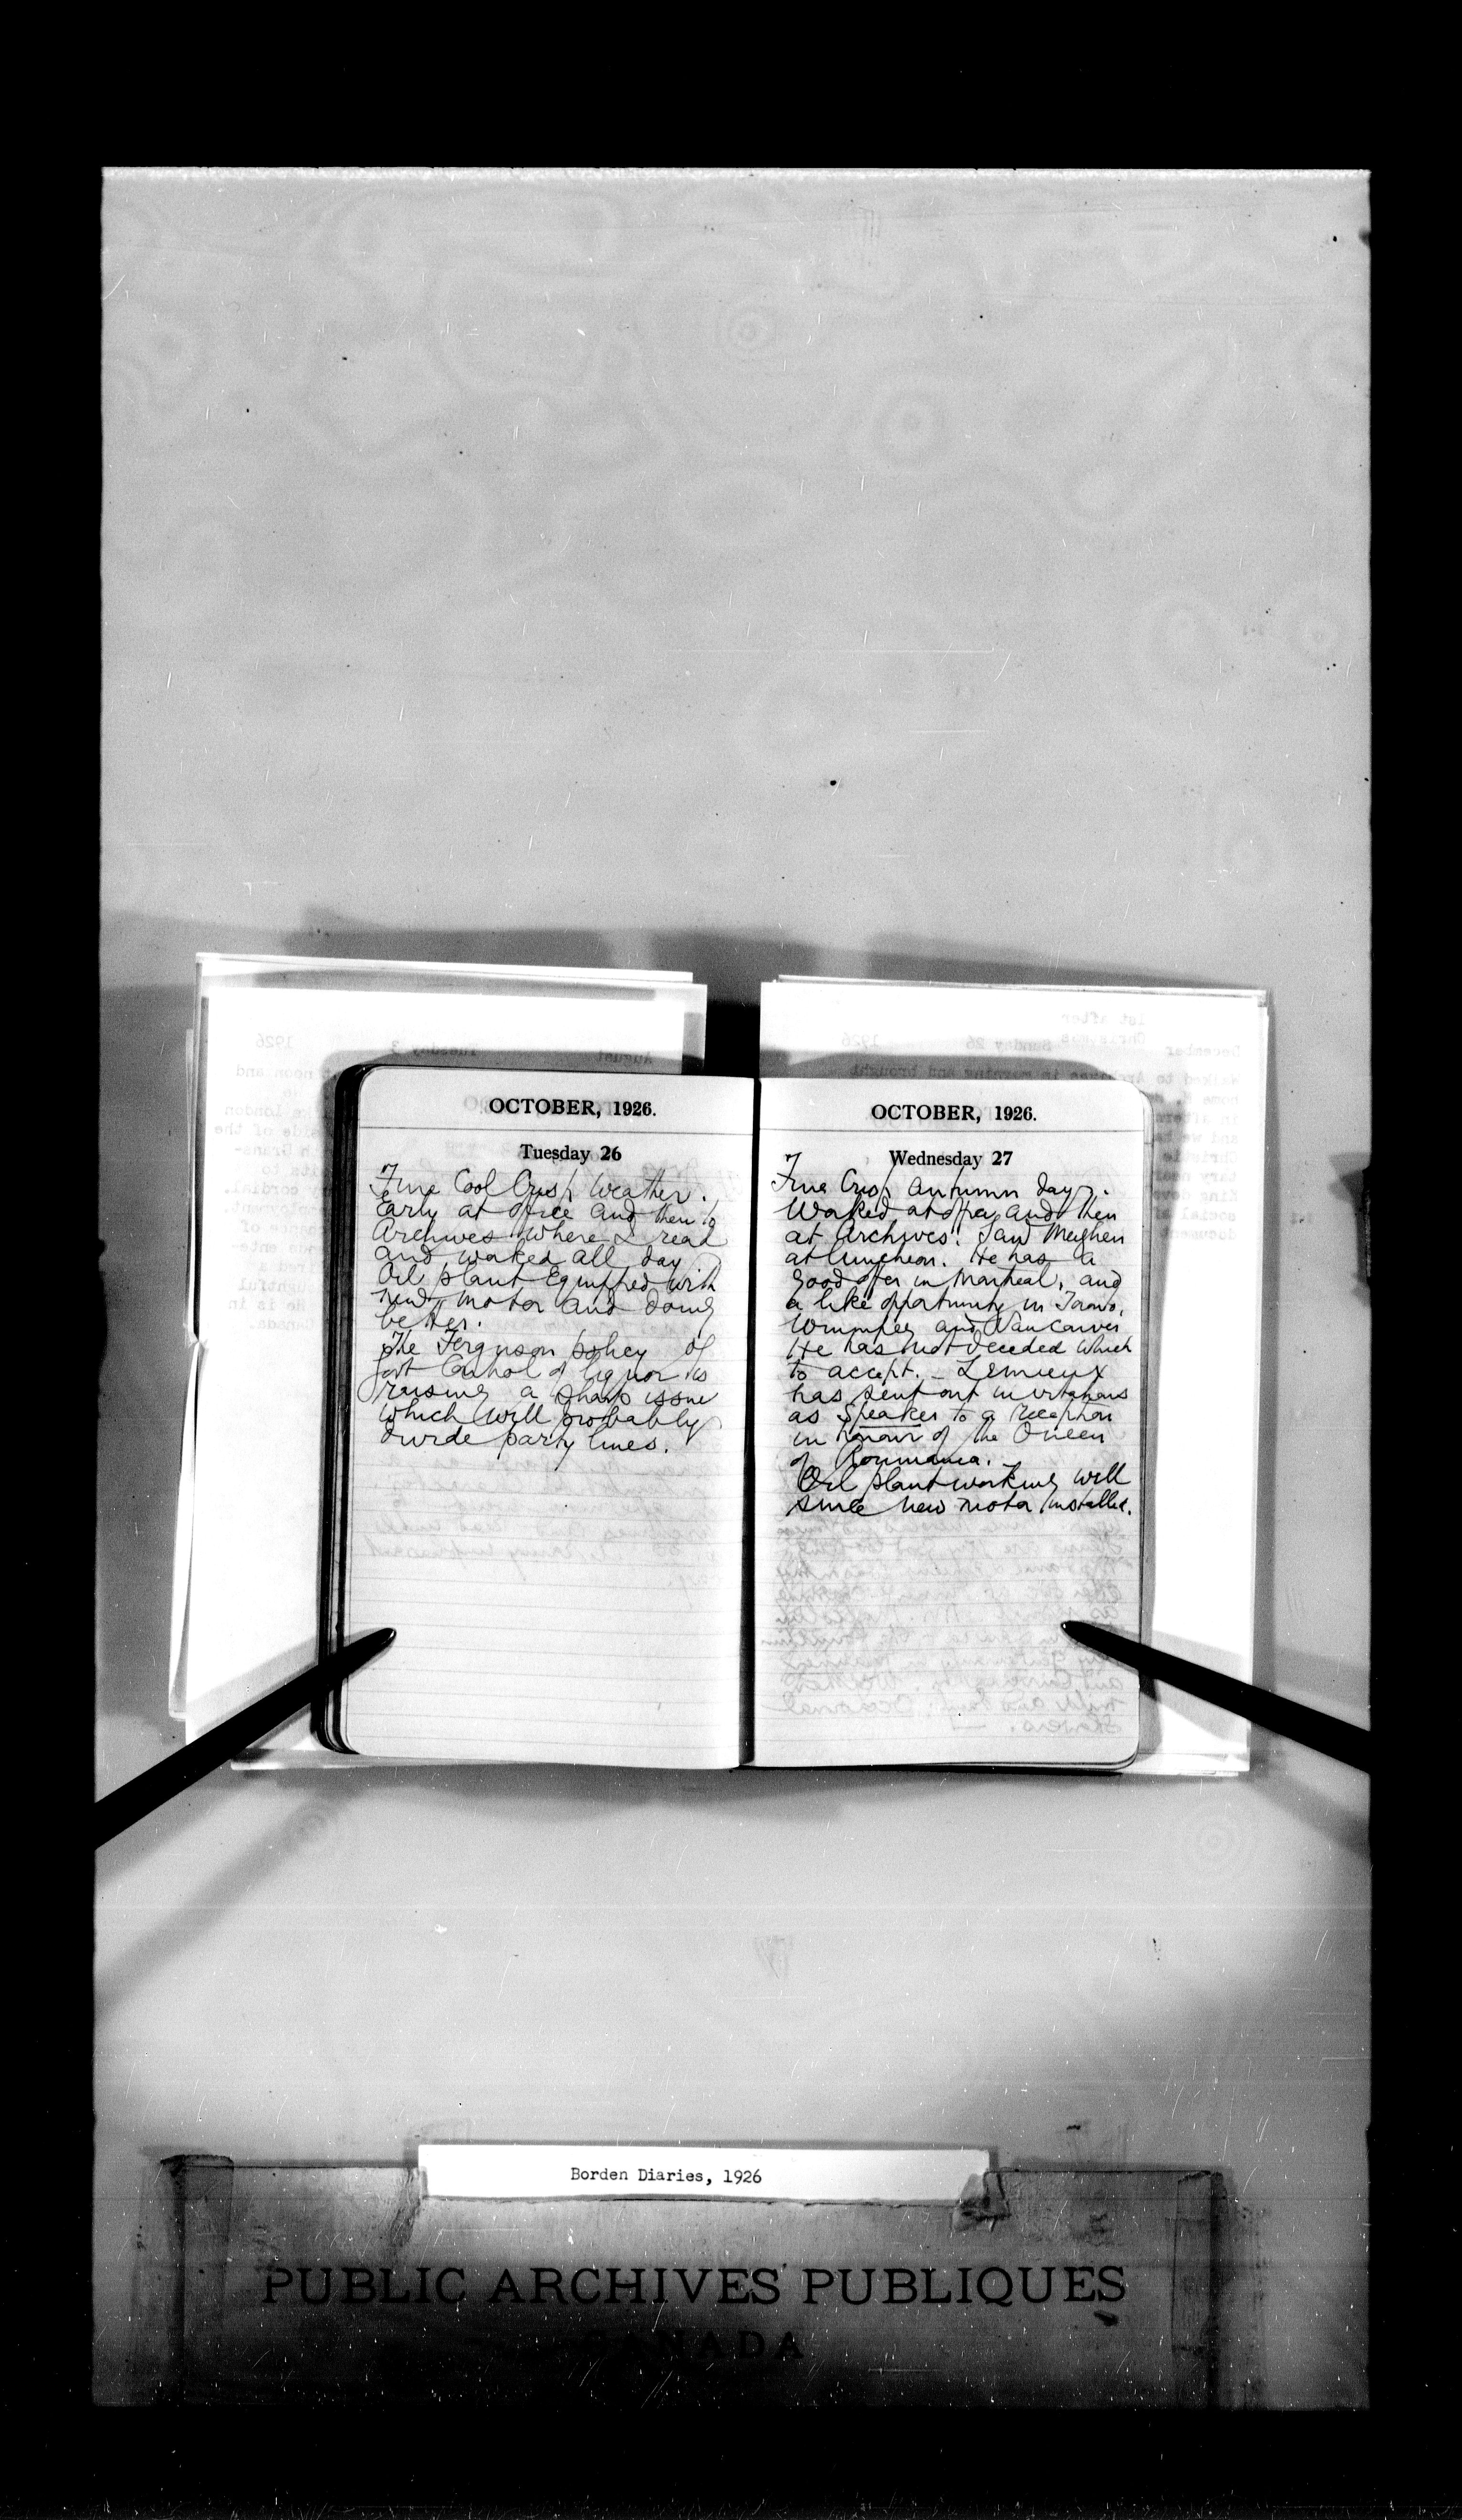 OCTOBER, 1926.
Tuesday 26
Fine Cool Crisp weather.
Early at office and then to
Archives where I read
and worked all day
Oil plant equipped with
new motor and doing
better.
The Ferguson policy of
Govt Control of liquor is
raising a sharp issue
which will probably
divide party lines.
OCTOBER, 1926.
Wednesday 27
Fine Crisp autumn day.
Worked at office and then
at Archives. Saw Meighen
at luncheon. He has a
good offer in Montreal, and
a like opportunity in Toronto,
Winnipeg and Vancouver
He has not decided which
to accept. _ Lemieux
has sent out invitations
as Speaker to a reception
in honour of the Queen
of Roumania. _
Oil plant working well
since new motor installed.
Borden Diaries, 1926
PUBLIC ARCHIVES PUBLIQUES
CANADA